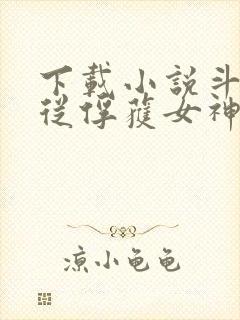 下載小說斗
從俘蒦女神
涼小龟龟